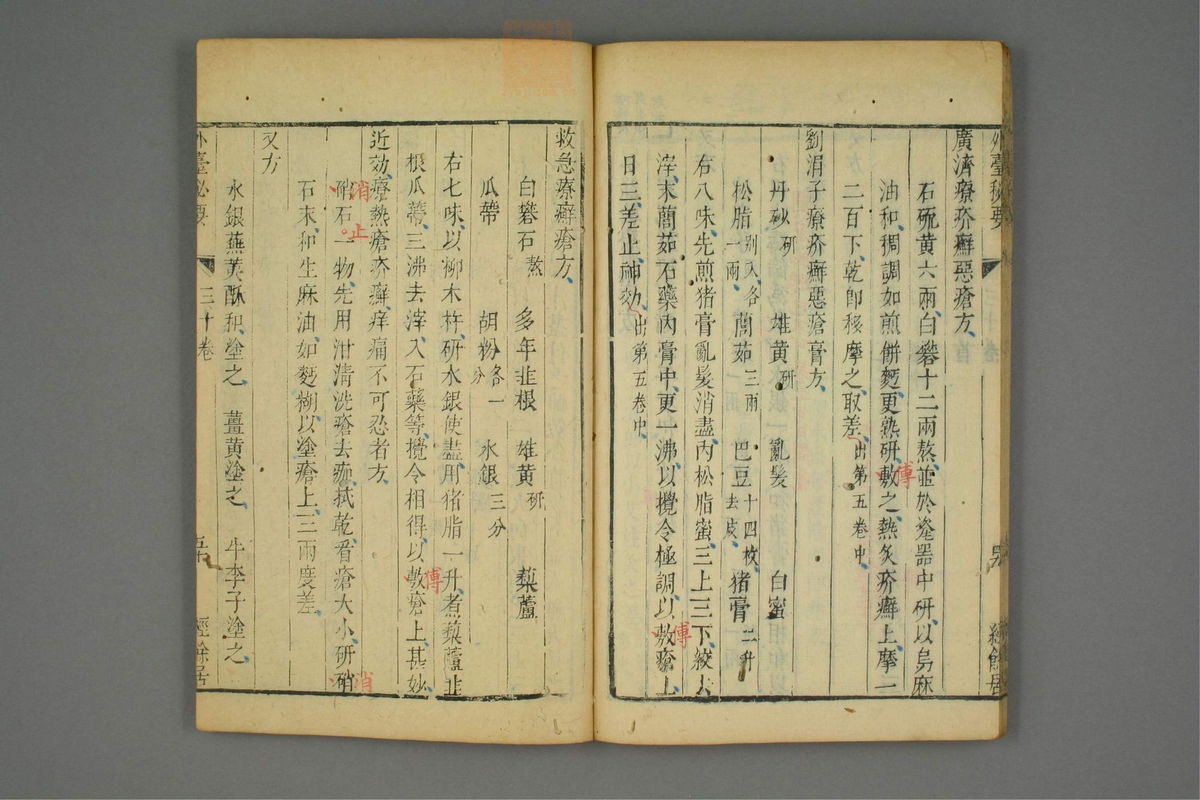 外臺秘要
經餘居
廣濟療疥癬惡瘡方
石硫黃六兩白礬十二兩熬並於瓷器中研以烏麻
油和稠調如煎餅麪更熟研敷之熱炙疥癬上摩一
傅
二百下乾即移摩之取差出第五卷中
劉涓子療疥癬惡瘡膏方
丹砂研 雄黃研 亂髮 白蜜
松脂別入各一兩 䕡茹三兩 巴豆十四枚去皮 猪膏二升
右八味先煎猪膏亂髮消盡內松脂蜜三上三下絞去
滓末䕡茹石藥內膏中更一沸以攪令極調以敷瘡上
傅
日三差止神効出第五卷中
救急療癬瘡方
白礬石熬 多年韭根 雄黃研 藜蘆
瓜蔕 胡粉各一分 水銀三分
右七味以柳木杵研水銀使盡用猪脂一升煮藜蘆韭
根瓜蔕三沸去滓入石藥等攪令相得以敷瘡上甚妙
傅
近効療熱瘡疥癬痒痛不可忍者方
硝石一物先用泔清洗瘡去痂拭乾看瘡大小研硝
消止
消
石末和生麻油如麪糊以塗瘡上三兩度差
又方
水銀蕪荑酥和塗之 薑黃塗之 牛李子塗之
外臺秘要
三十卷
經餘居